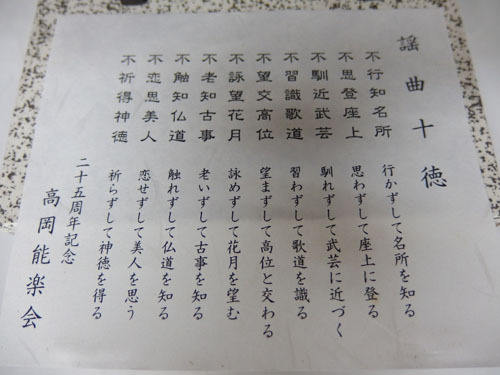 謡曲十徳
不行知名所
不思登座上
不馴近武芸
不習識歌道
不望交高位
不詠望花月
不老知古事
不触知仏道
不恋思美人
不祈得神徳
行かずして名所を知る
思わずして座上に登る
馴れずして武芸に近づく
習わずして歌道を識る
望まずして高位と交わる
詠めずして花月を望む
老いずして古事を知る
触れずして仏道を知る
恋せずして美人を思う
祈らずして神徳を得る
二十五周年記念
高岡能楽会